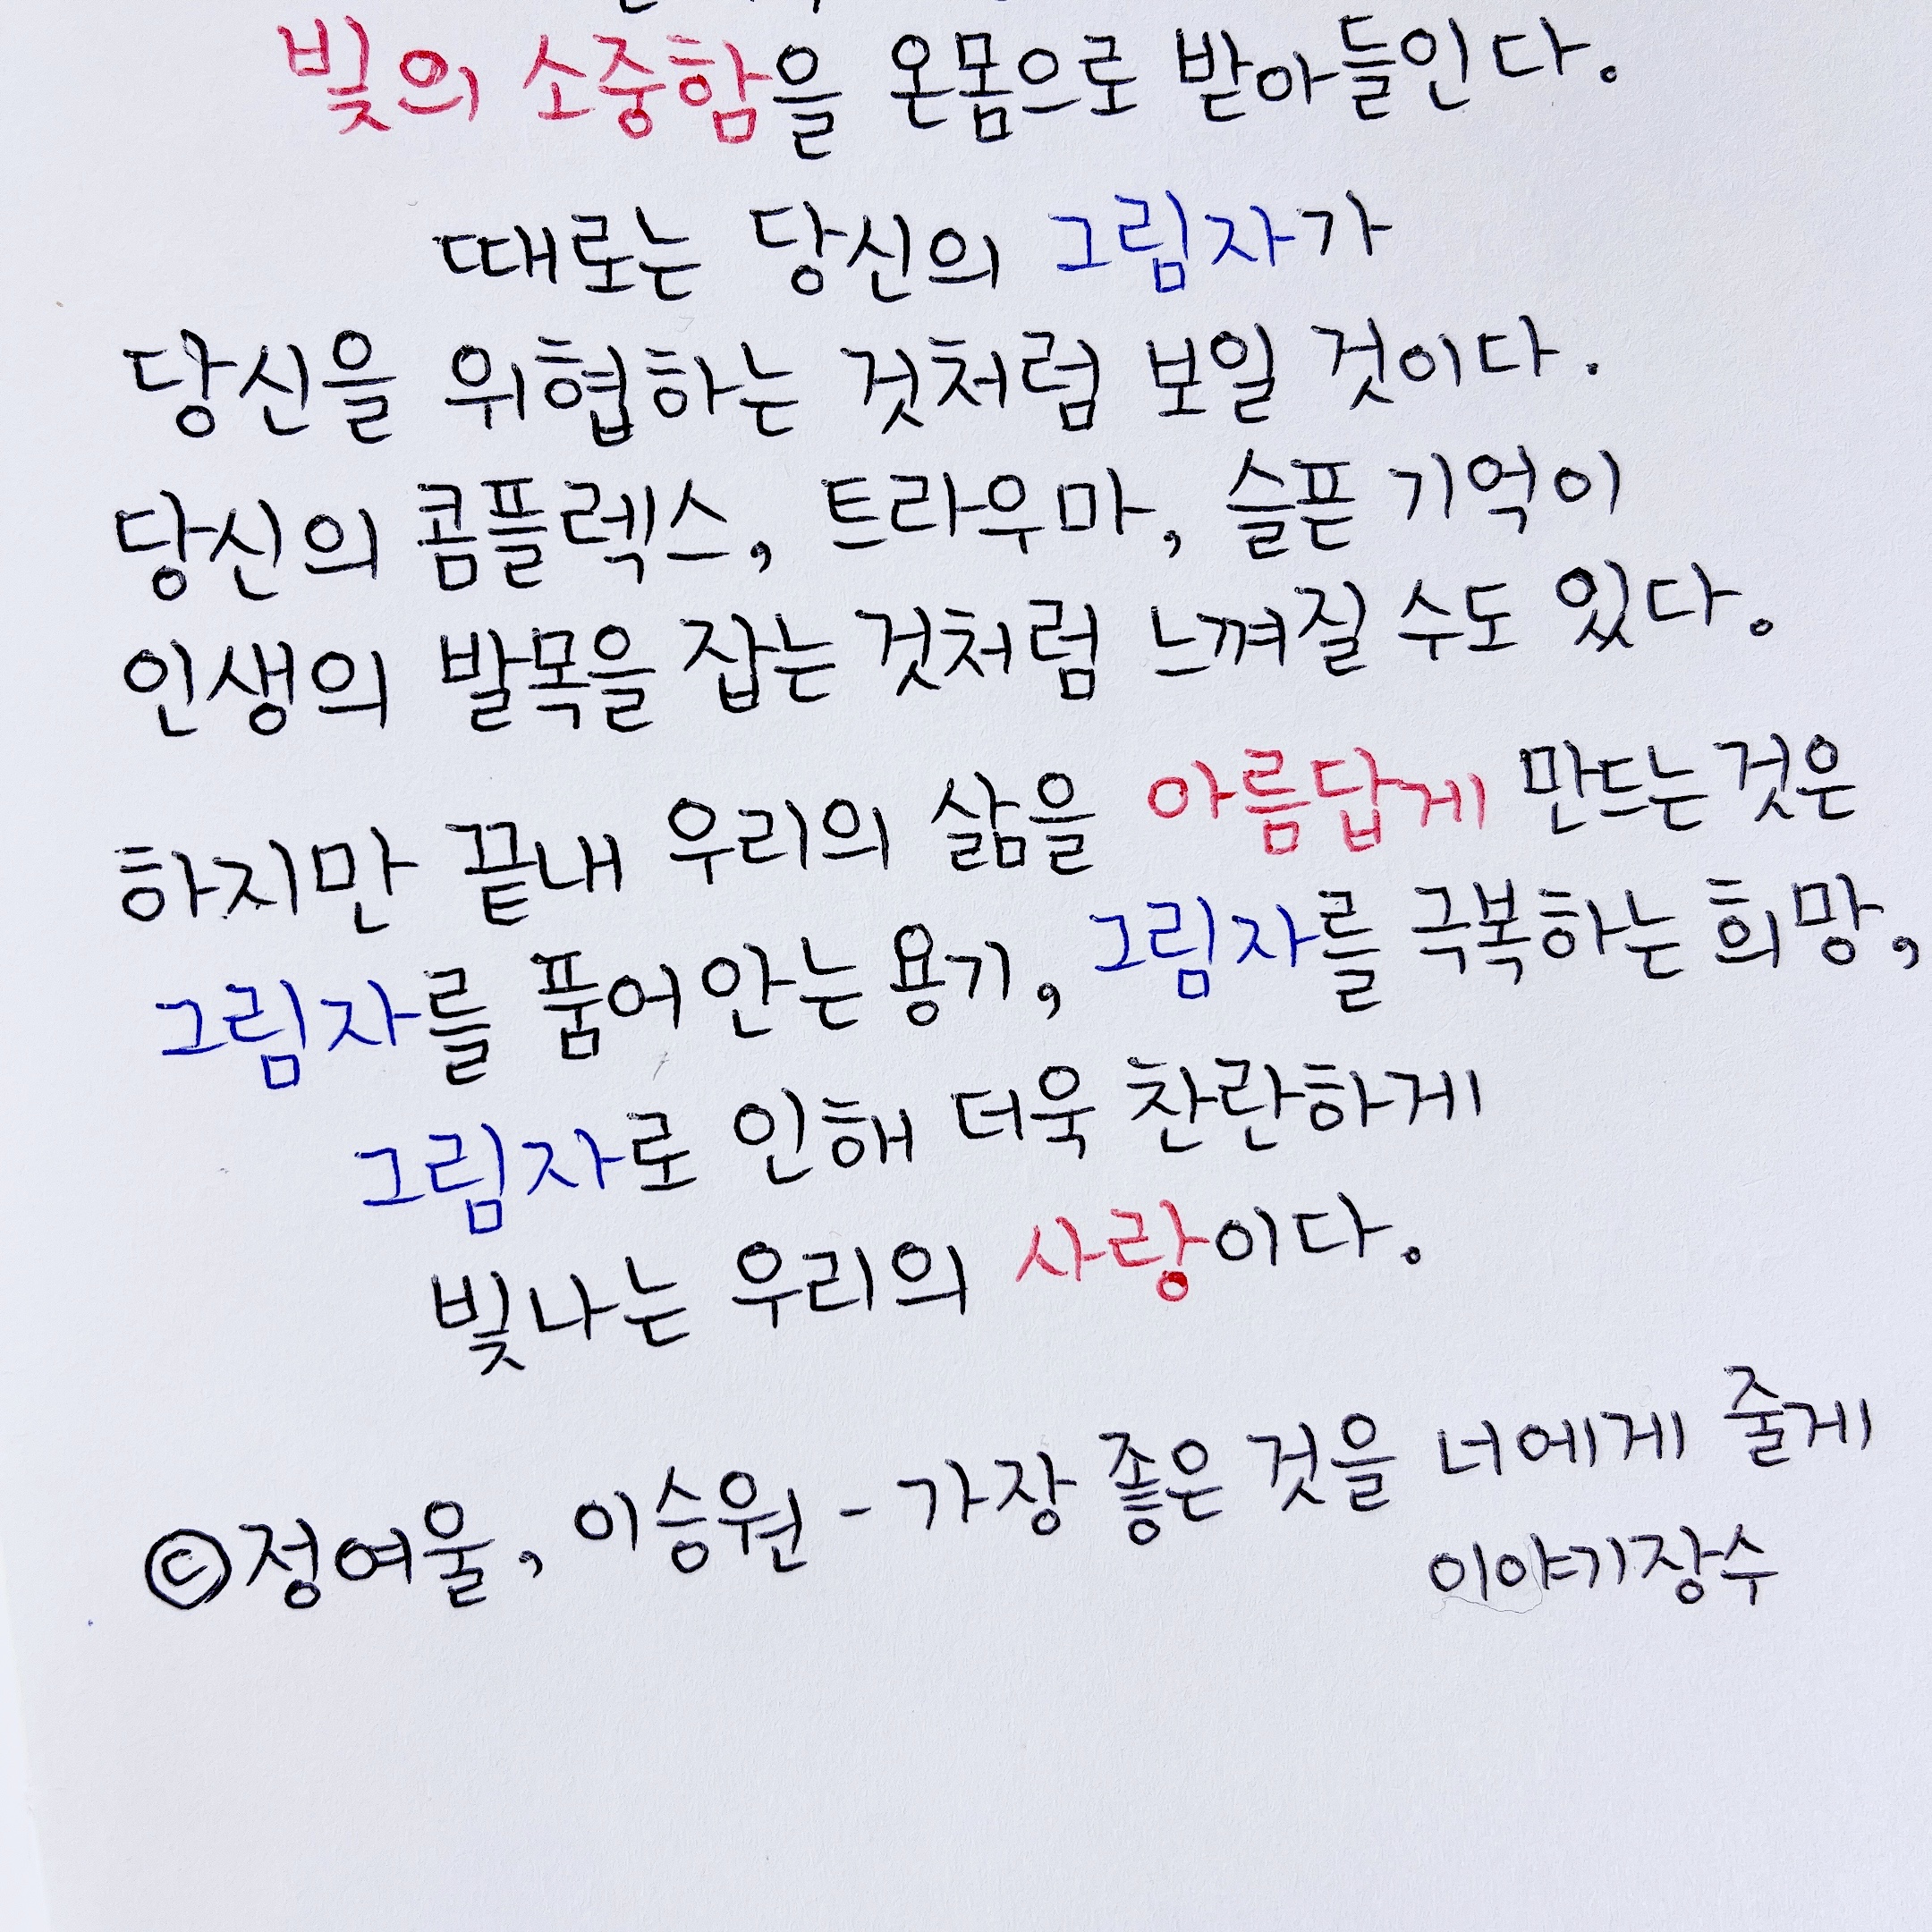 빛의 소중함을 온몸으로 받아들인다.
때로는 당신의 그림자가
당신을 위협하는 것처럼 보일 것이다.
당신의 콤플렉스, 트라우마, 슬픈 기억이
인생의 발목을 잡는 것처럼 느껴질 수도 있다.
하지만 끝내 우리의 삶을 아름답게 만드는 것은
그림자를 품어안는 용기, 그림자를 극복하는 희망,
그림자로 인해 더욱 찬란하게
빛나는 우리의 사랑이다.
©정여울, 이승원 - 가장 좋은 것을 너에게 줄게
이야기장수